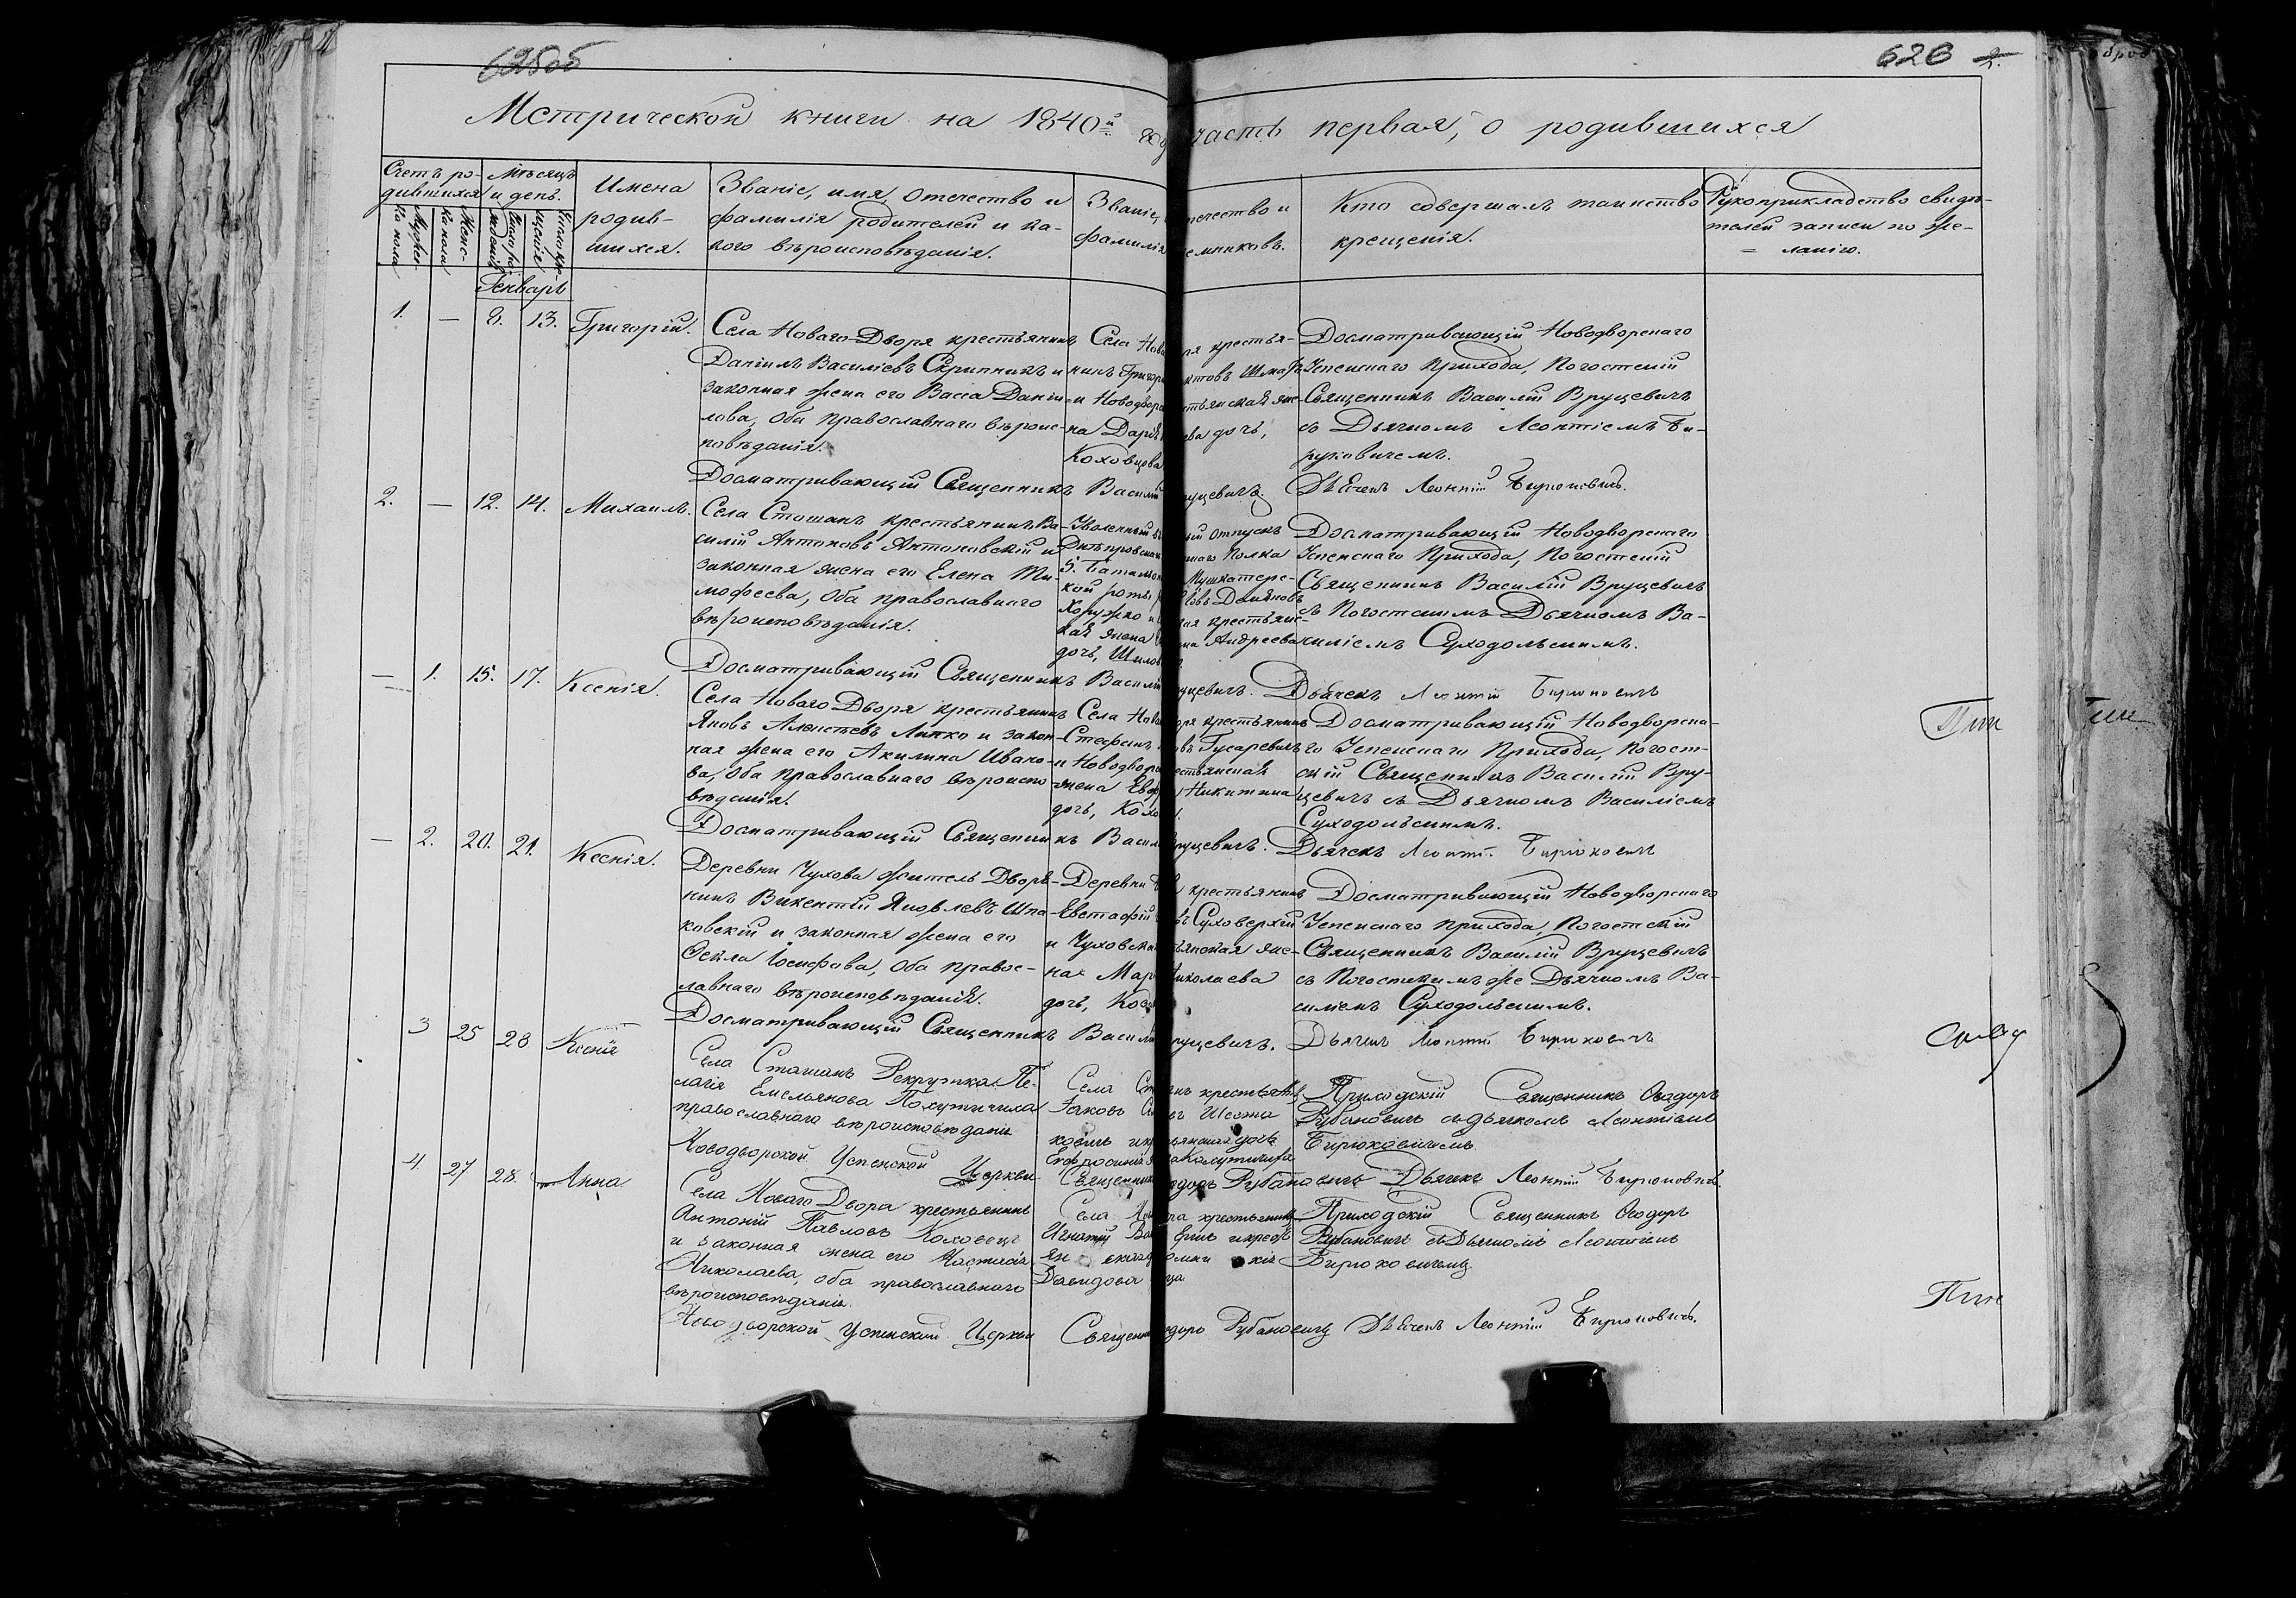 625об
626 2.
Метрической книги на 1840й год часть первая, о родившихся
Счетъ ро-
дившихся
Мужес-
ка пола
Женс-
ка пола
Мѣсяцъ
и день.
Имена
родив-
шихся.
Званіе, имя, отечество и
фамилія родителей и ка-
кого вѣроисповѣданія.
Званіе,
фамилія
течество и
емниковъ.
Кто совершалъ таинство
крещенія.
Рукоприкладство свидѣ-
телей записи по же-
ланію.
Генварь
1. — 8. 13. Григорій.
Села Новаго-Двора крестьянинъ
Даніилъ Василіевъ Скрипникъ и
законная жена его Васса Даніи-
лова, оба православнаго вѣроис-
повѣданія.
Села Нов ра крестья-
нинъ Григор
и Новодвор стьянская же-
на Дарья ева дочь,
Коховцова
Досматривающій Новодворскаго
Успенскаго Прихода, Погостскій
Священникъ Василій Вруцевичъ
съ Дьячкомъ Леонтіемъ Би-
руковичемъ.
Досматривающій Священникъ Василій руцевичъ. Дьячекъ Леонтій Бирюковичъ.
2. — 12. 14. Михаилъ.
Села Стошанъ крестьянинъ Ва-
силій Антоновъ Антоновскій и
законная жена его Елена Ти-
мофеева, оба православнаго
вѣроисповѣданія.
Уволенный въ ый отпускъ
Днѣпровска наго полка
5. Баталіо Мушкатерс-
кой роты
Хоружко и ая крестьянс-
кая жена на Андреева
дочь, Шило
Досматривающій Новодворскаго
Успенскаго Прихода, Погостскій
Священникъ Василій Вруцевичъ
съ Погостскимъ Дьячкомъ Ва-
силіемъ Суходольскимъ.
Досматривающій Священникъ Василій руцевичъ. Дьячекъ Леонтій Бирюковичъ
— 1. 15. 17. Ксенія.
Села Новаго Двора крестьянинъ
Яковъ Алексѣевъ Лапко и закон-
ная жена его Акилина Ивано-
ва, оба православнаго вѣроиспо-
вѣданія.
Села Нов ора крестьянинъ
Стефанъ овъ Гусаревичъ
и Новодвор естьянская
жена Евд Никитина
дочь, Кохо
Досматривающій Новодворска-
го Успенскаго Прихода, Погост-
скій Священникъ Василій Вру-
цевичъ съ Дьячкомъ Василіемъ
Суходольскимъ.
Досматривающій Священникъ Васил руцевичъ. Дьячекъ Леонтій Бирюковичъ
— 2. 20. 21. Ксенія.
Деревни Чухова житель Дворя-
нинъ Викентій Яковлевъ Шпа-
ковскій и законная жена его
Фекла Іосифова, оба правос-
лавнаго вѣроисповѣданія.
Деревни крестьянинъ
Евстафій Суховерхій
и Чуховска ьянская же-
на Мар иколаева
дочь,
Досматривающій Новодворскаго
Успенскаго прихода, Погостскій
Священникъ Василій Вруцевичъ
съ Погостскимъ же Дьячкомъ Ва-
силіемъ Суходольскимъ.
Досматривающій Священникъ Васили руцевичъ. Дьячекъ Леонтій Бирюковичъ
3 25 28 Ксенія
Села Сташанъ Рекрутка Пе-
лагія Емельянова Полутичиха
православнаго вероисповеданія
Села Ст нъ крестьянинъ
Яковъ
ьянская дочь
Ефросинія
Приходскій Священникъ Феодоръ
Рубановичъ съ дьячкомъ Леонтіемъ
Бирюковичемъ
Новодворской Успенской Церкви Священник одоръ Рубановичъ Дьячекъ Леонтій Бирюковичъ.
4 27 28. Анна
Села Новаго Двора крестьянинъ
Антоній Павловъ Коховецъ
и законная жена его Настасія
Николаева, оба православнаго
вѣроисповѣданія.
Села ра крестьянинъ
Игнатій
Давидова
Приходскій Священникъ Феодоръ
Рубановичъ съ Дьячкомъ Леонтіемъ
Бирюковичемъ
Новодворской Успенской Церкви Священ одоръ Рубановичъ Дьячекъ Леонтій Бирюковичъ.